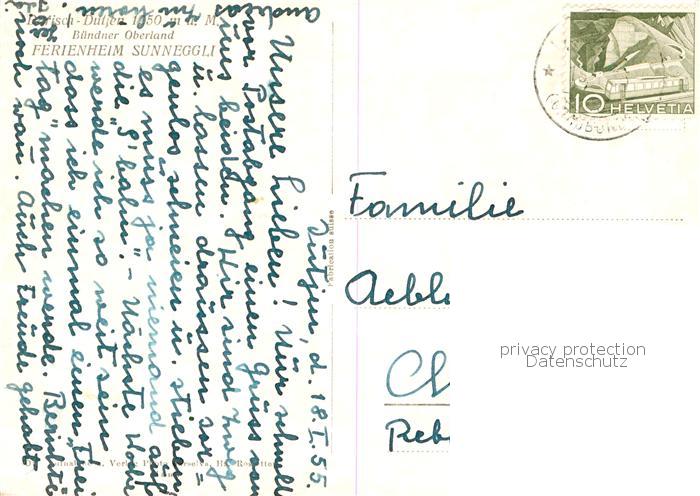 Pitasch-Dutjen 1050 m ü. M.
Bündner Oberland
FERIENHEIM SUNNEGGLI
Dütjen, d. 18. I. 55.
Unsere Lieben! Nur schnell
vor Postabgang einen Gruss von
uns beiden. Wir sind zweg
u. lassen draussen sor=
genlos schneien u. stieben
es muss ja niemand auf
die "S'bahn". - Nächste Woche
werde ich so weit sein
dass ich einmal einen "Frei
tag" machen werde.
noch wan. Auch Freude gehabt
Fabrication suisse
10 HELVETIA
Familie
Aebl
Ch
Reb
privacy protection
Datenschutz